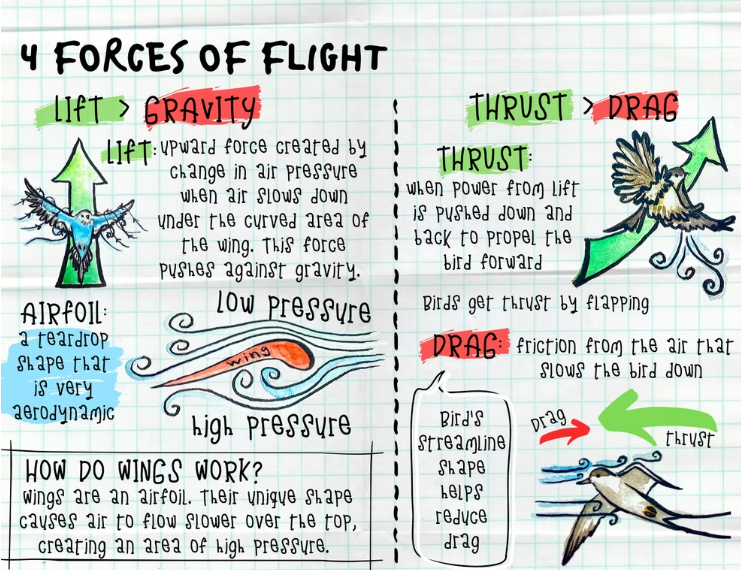 4 FORCES OF FLIGHT
LIFT > GRAVITY
LIFT: upward force created by
change in air pressure
when air slows down
under the curved area of
the wing. This force
pushes against gravity.
AIRFOIL:
a teardrop
shape that
is very
aerodynamic
low pressure
wing
high pressure
HOW DO WINGS WORK?
Wings are an airfoil. Their unique shape
causes air to flow slower over the top,
creating an area of high pressure.
THRUST > DRAG
THRUST:
when power from lift
is pushed down and
back to propel the
bird forward
Birds get thrust by flapping
DRAG: friction from the air that
slows the bird down
Bird's
streamline
shape
helps
reduce
drag
Drag
thrust